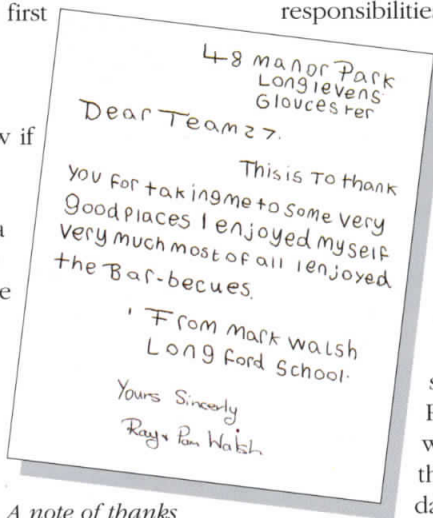 first
responsibilities
v if
a
e
48 manor Park
Longlevens
Gloucester
Dear Team 27.
This is To thank
you for taking me to some very
good places I enjoyed myself
very much most of all I enjoyed
the Bar-becues.
From mark walsh
Long ford school.
Yours Sincerly
Ray & Pam Walsh
s
w
th
da
A note of thanks